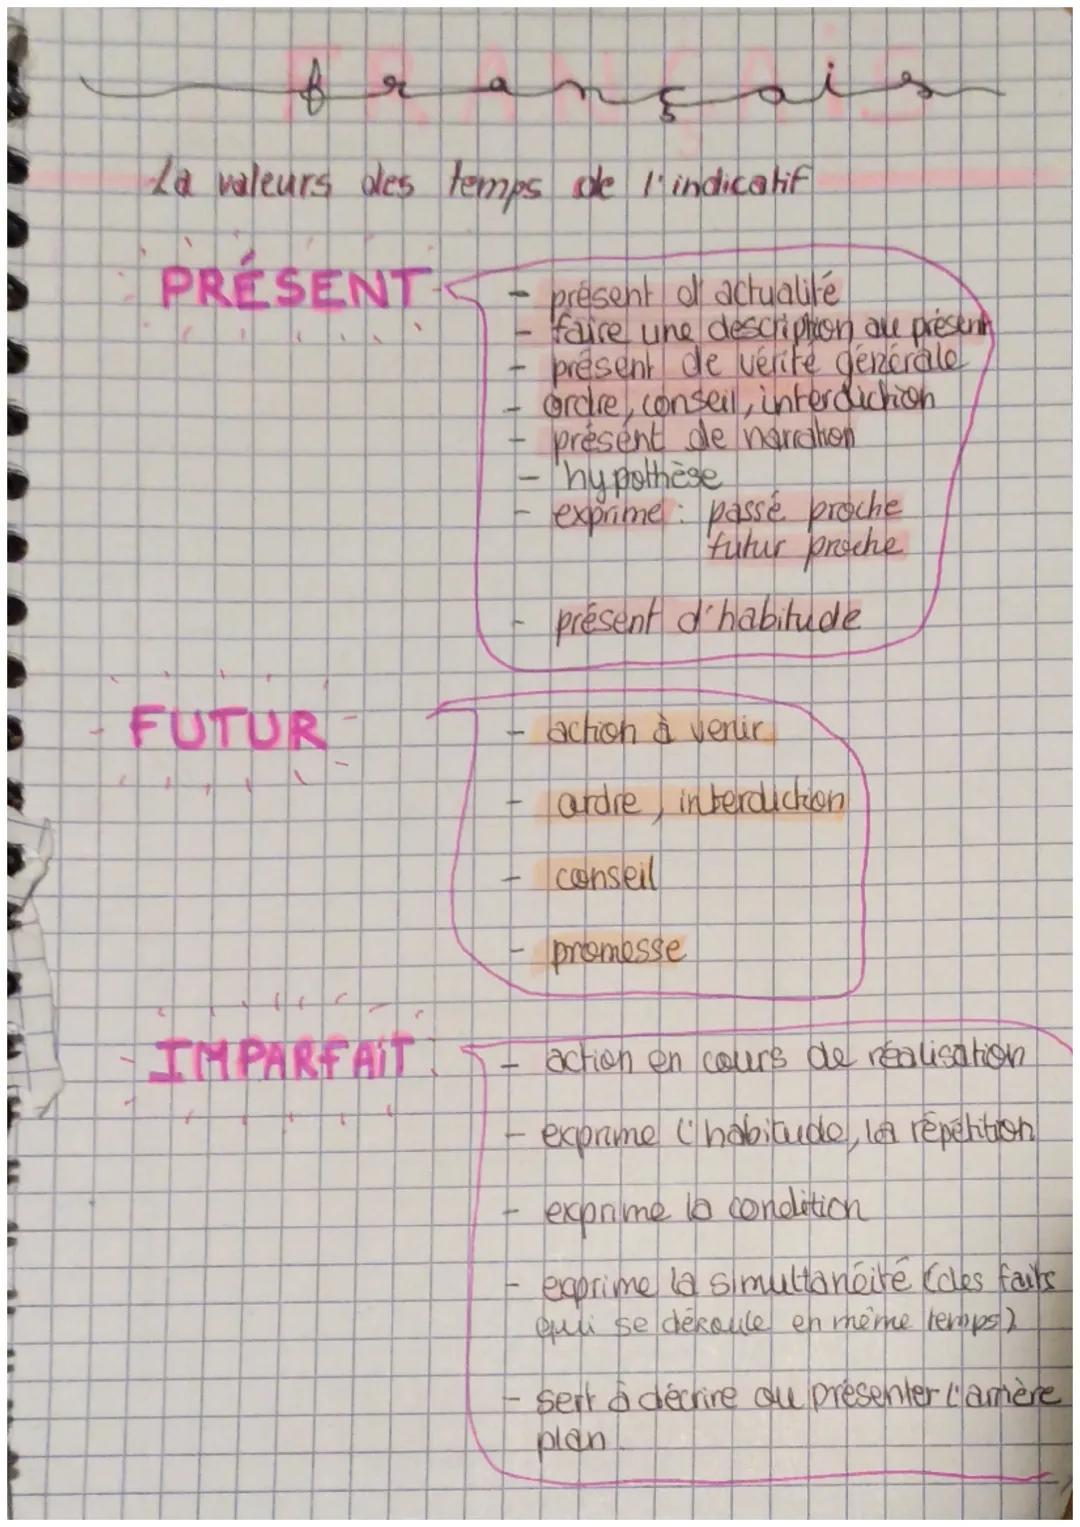 FRANÇAIS
français
La valeurs des temps de l'indicatif
PRÉSENT
- présent d'actualité
- faire une description au présent
- présent de vérité générale
- ordre, conseil, interdiction
- présent de narration
- hypothèse
- exprime : passé proche
futur proche
- présent d'habitude
FUTUR
- action à venir
- ordre, interdiction
- conseil
- promesse
IMPARFAIT :
- action en cours de réalisation
- exprime l'habitude, la répétition
- exprime la condition
- exprime la simultanéité (des faits
qui se déroule en même temps)
- sert à décrire ou présenter l'arrière
plan